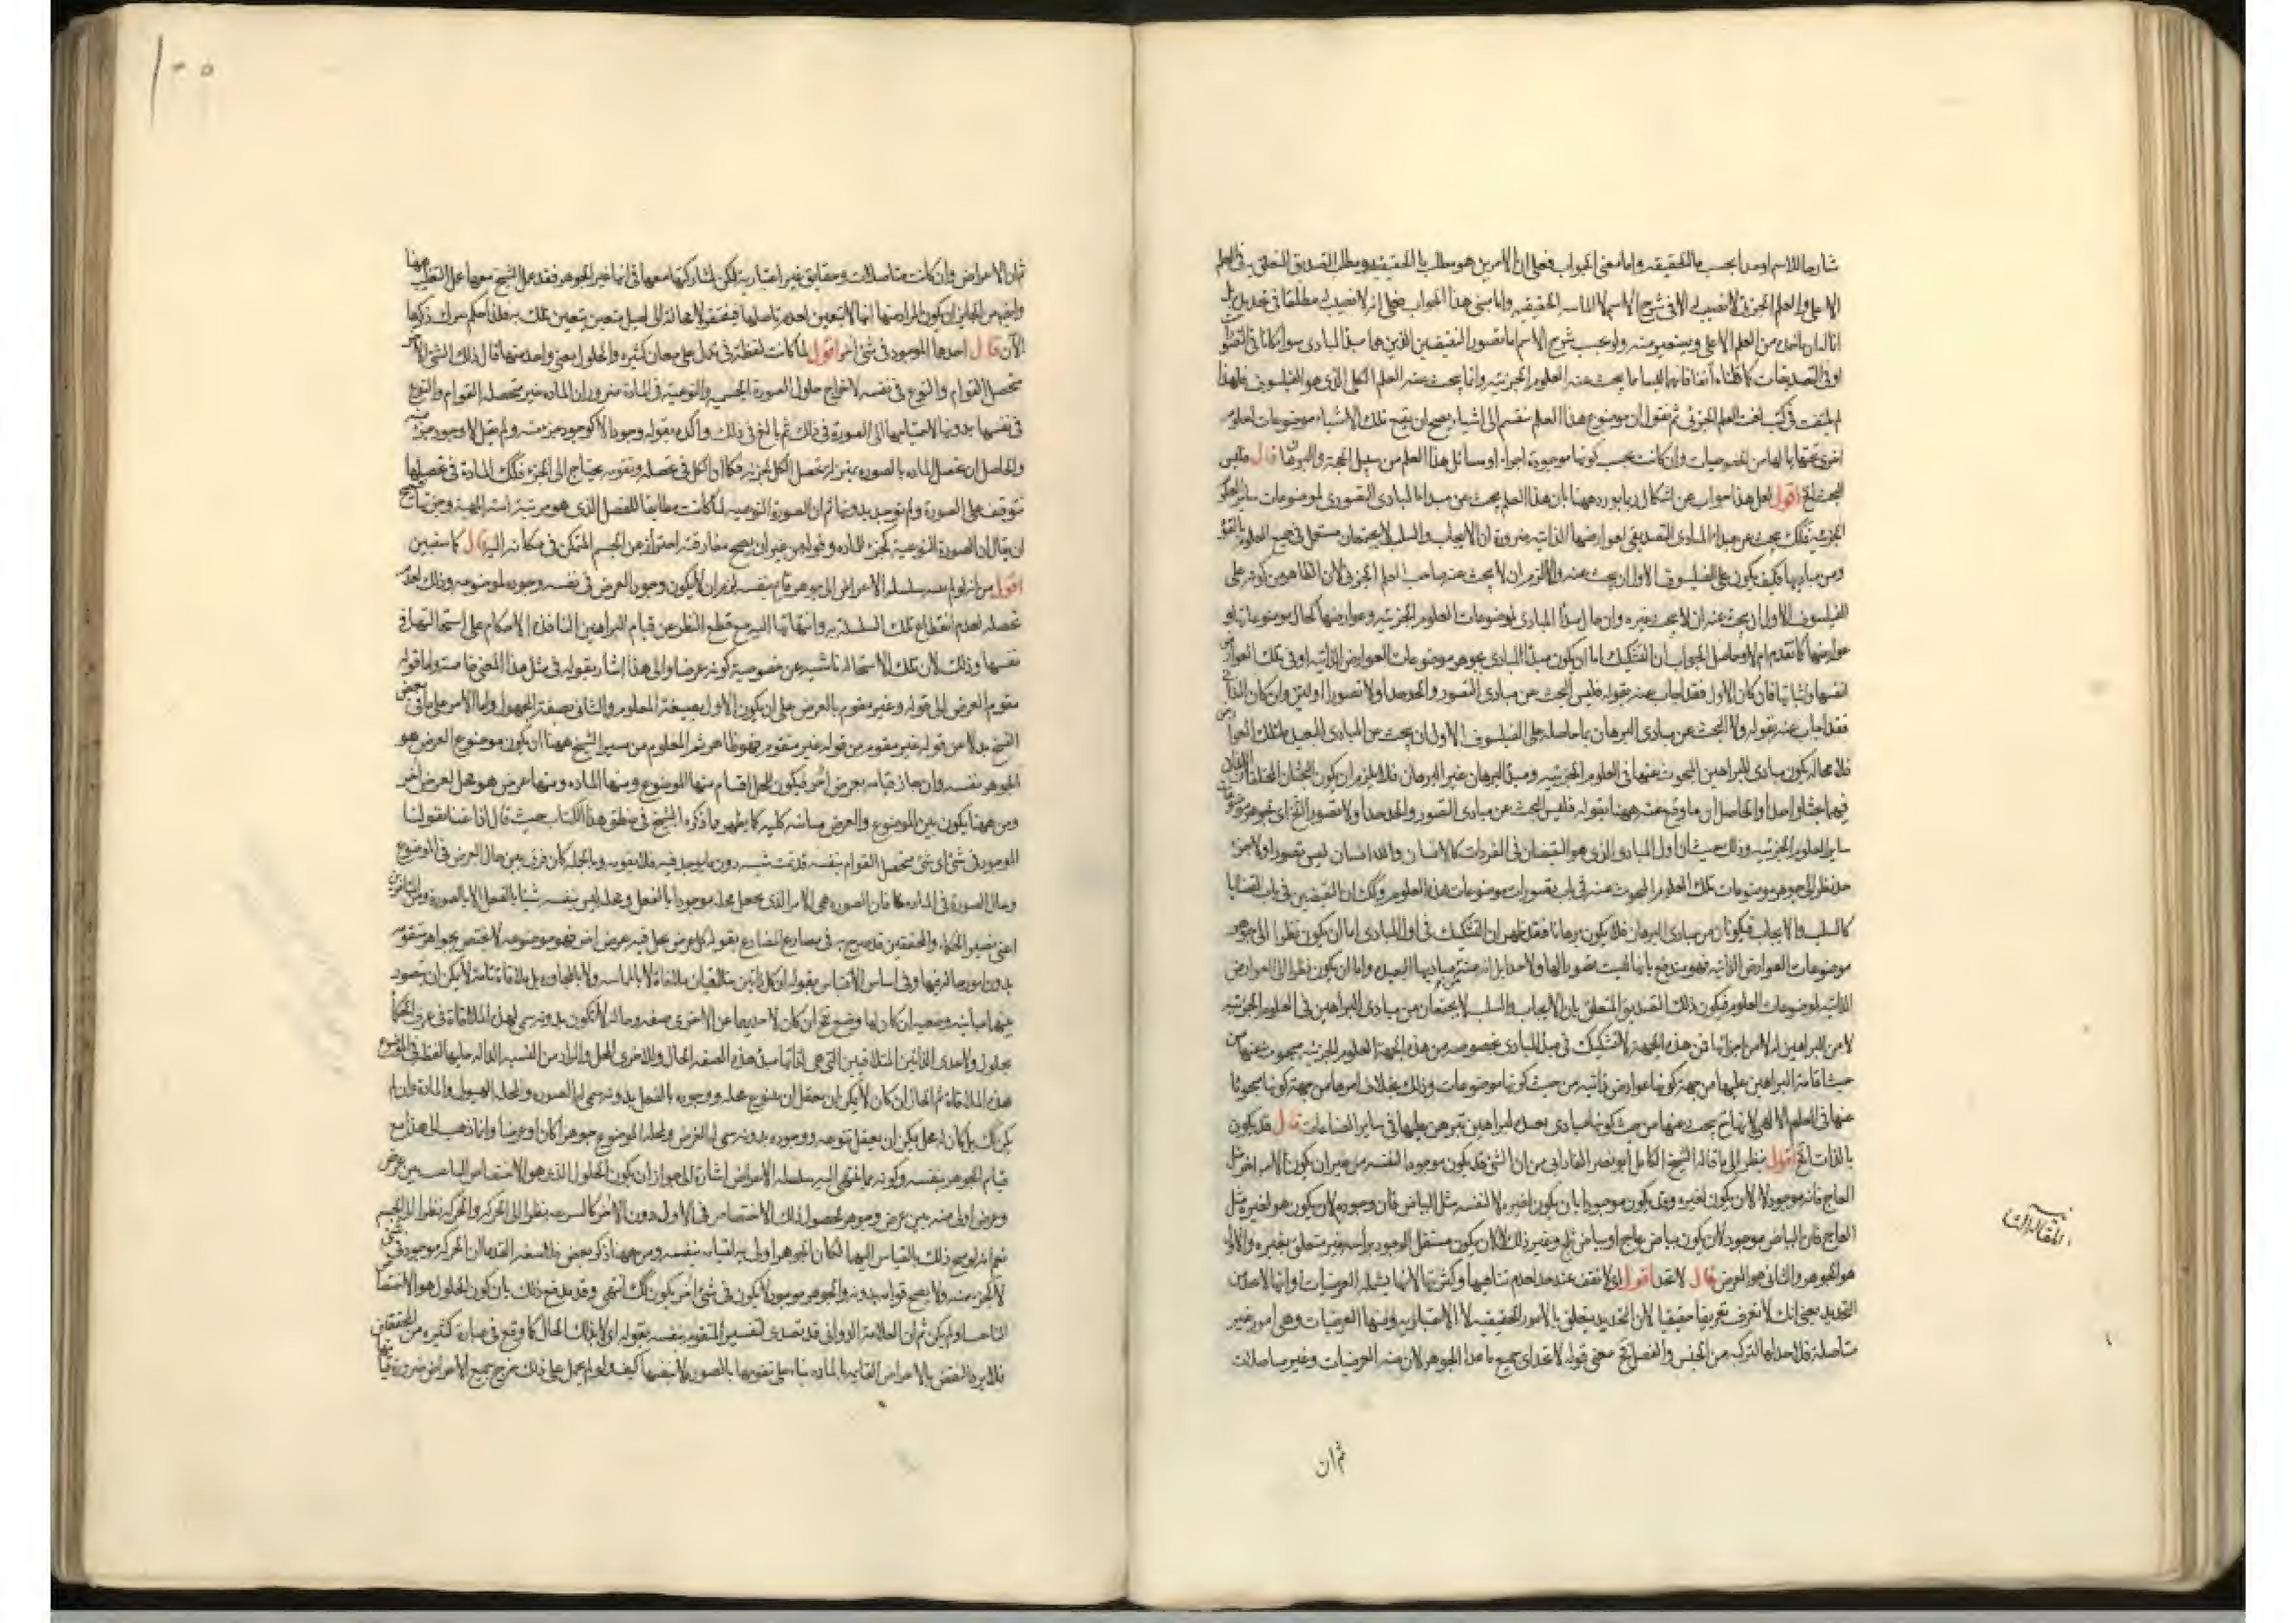 شارحا للاسم اوحدا بحسب الحقيقه واما معنى الجواب فعلى ان الامرين هو مطلب ما الحقيقيه ومطلب التصديق المتعلق في العلم
الاعلى والعلم الجزئى لا نصيب له الا فى شرح الاسم لا الماسب الحقيقيه واما مبنى هذا الجواب فعلى انه لا نصيب له مطلقا فى تحديد بل
انما له ان ياخذ من العلم الاعلى ويستعير منه ولو بحسب شرح الاسم اما تصور النقيضين اللذين هما مبدأ المبادى سواء كانا فى التصور
او فى التصديقات كما ظناه آنفا فانهما ليسا مما يبحث عنه العلوم الجزئيه وانما يبحث عنه العلم الكلى الذى هو الفيلسوف فلهذا
لم يلتفت فى كتب لغت العلم الجزئى ثم نقول ان موضوع هذا العلم منقسم الى اشياء يصح ان يقع تلك الاشياء موضوعات لعلوم
اخرى تحتها بما لها من الخصوصيات وان كانت بحسب كونها موجودة اجزاء او مسائل هذا العلم من سبيل الحجة والبرهان قال فليس
البحث الخ اقول لعل هذا جواب عن اشكال ربما يورد ههنا بان هذا العلم يبحث عن مبدا المبادى التصورى لموضوعات ساير العلوم
الجزئيه فكذلك يبحث عن مبدا المبادى التصديقى لعوارضها الذاتيه ضرورة ان الايجاب والسلب لا يجتمعان مستعمل فى جميع العلوم بالقوة
ومن مباديها فكيف يكون على الفيلسوف الاول ان يبحث عنه والالزم ان لا يبحث عنه صاحب العلم الجزئى لان الظاهر من كونه على
الفيلسوف الاول ان يبحث عنه ان لا يبحث غيره وان حال مبدأ المبادى لموضوعات العلوم الجزئيه وعوارضها كحال موضوعاتها و
عوارضها كما تقدم ام لا وحاصل الجواب ان التشكيك اما ان يكون مبدأ المبادى بجوهر موضوعات العوارض الذاتيه او فى تلك العوارض
انفسها واثباتها فان كان الاول فقد اجاب عنه بقوله فليس البحث عن مبادى التصور والحد حدا ولا تصورا اولى وان كان الثانى
فقد اجاب عنه بقوله ولا البحث عن مبادى البرهان بما حاصله على الفيلسوف الاول ان يبحث عن المبادى البعيدة لتلك العوارض
فلا محاله يكون مبادى للبراهين المبحوث عنها فى العلوم الجزئيه ومبدأ البرهان غير البرهان فلا يلزم ان يكون البحثان المختلفان
فيهما بحثا واحدا والحاصل ان ما وقع عنه ههنا بقوله فليس البحث عن مبادى التصور والحد حدا ولا تصور الخ اى نحو جوهر موضوعات
ساير العلوم الجزئيه وذلك حيث ان اول المبادى الذى هو النقيضان فى المفردات كالانسان واللا انسان ليس تصورا ولا جزء
حد نظر الى جوهر موضوعات تلك العلوم المبحوث عنه فى باب تصورات موضوعات هذه العلوم وكذلك ان النقيضين فى باب القضايا
كالسلب والايجاب فيكونان من مبادى البرهان فلا يكون برهانا فقد ظهر ان التشكيك فى اول المبادى اما ان يكون نظرا الى جوهر
موضوعات العوارض الذاتيه فهو يندفع بانها ليست تصورا لها ولا حدا بل انه من مباديها البعيده واما ان يكون نظرا الى العوارض
الذاتيه لموضوعات العلوم فيكون ذلك التصديق المتعلق بان الايجاب والسلب لا يجتمعان من مبادى البراهين فى العلوم الجزئيه
لا من البراهين ولا من اجزائها فمن هذه الجهة لا تشكيك فى مبدأ المبادى بخصوصه من هذه الجهة العلوم الجزئيه مبحوث عنها من
حيث اقامة البراهين عليها من جهة كونها عوارض ذاتيه من حيث كونها موضوعات وذلك بخلاف امرها من جهة كونها مبحوثا
عنها فى العلم الالهى لانها تبحث عنها من حيث كونها مبادى بعيدة لبراهين تبرهن عليها فى ساير الصناعات قال قد يكون
بالذات الخ اقول ينظر الى ما قاله الشيخ الكامل ابو نصر الفارابى من ان الشئ قد يكون موجودا لنفسه من غير ان يكون لامر اخر مثل
العاج فانه موجود لا لان يكون لغيره وقد يكون موجودا بان يكون لغيره لا لنفسه مثل البياض فان وجوده لان يكون هو لغيره مثل
العاج فان البياض موجود لان يكون بياض عاج او بياض ثلج وغير ذلك لا لان يكون مستقل الوجود براسه غير متعلق بغيره والاول
هو الجوهر والثانى هو العرض قال لا تعد اقول اى لا تقف عند حد لعدم تناهيها وكثرتها لانها يشمل العرضيات وانها لاحد من
التحديد بمعنى انك لا تعرف تعريفا حقيقيا لان التحديد يتعلق بالامور الحقيقيه لا الاعتباريه ومنها العرضيات وهى امور غير
متأصلة فلا حد لها لتركبه من الجنس والفصل الخ معنى قوله لا تعد اى جميع ما عدا الجوهر لان منه العرضيات وغير متاصلات
ثم ان
المقالة الثانية
١٠٥
ثم ان الاعراض وان كانت متاصلات وحقايق غير اعتباريه لكن لمشاركتها معها فى انها غير الجوهر فقد عمل الشيخ معها عمل التغليب ههنا
وايضا من الجايز ان يكون المراد منها انها لا يتعين لعدم تاصلها فيفتقر لا محالة الى اصيل يتعين بتعينه تلك
الآن قال احدها الموجود فى شئ اخر اقول لما كانت لفظة فى تدل على معان كثيره والحلول معنى واحد منها قال ذلك الشئ الاخر
متحصل القوام والنوع فى نفسه لاخراج حلول الصورة الجسميه والنوعيه فى المادة ضرورة ان الماده غير متحصله القوام والنوع
فى نفسها بدونها لاحتياجها الى الصورة فى ذلك ثم بالغ فى ذلك واكده بقوله وجودا لا كوجود جزء منه ولم يقل لا وجود جزء منه
والحاصل ان تحصل الماده بالصوره بمنزلة تحصل الكل بجزئه فكما ان الكل فى تحصله وتقومه يحتاج الى الجزء فكذلك المادة فى تحصلها
تتوقف على الصورة ولم توجد بدونها ثم ان الصورة النوعيه لما كانت مطابقا للفصل الذى هو مرتبة ذات المهية وجزئها صح
ان يقال ان الصورة النوعية كجزء للماده وقوله من غير ان يصح مفارقته احتراز عن الجسم المتمكن فى مكانه اليه قال كما ستبين
اقول من انه لو لم ينته سلسلة الاعراض الى جوهر قايم بنفسه لزم ان لا يكون وجود العرض فى نفسه وجوده لموضوعه وذلك لعدم
تحصله لعدم انقطاع تلك السلسلة به وانتهائها اليه مع قطع النظر عن قيام البراهين النافذة الاحكام على استحالتها فى
نفسها وذلك لان تلك الاستحاله ناشيه عن خصوصية كونه عرضا والى هذا اشار بقوله فى مثل هذا المعنى خاصة واما قوله
مقوم العرض الى قوله وغير مقوم بالعرض على ان يكون الاول بصيغة المعلوم والثانى بصيغة المجهول واما الامر على ما فى بعض
النسخ بدلا عن قوله غير مقوم من قوله غير متقوم فهو ظاهر ثم المعلوم من سير الشيخ ههنا ان يكون موضوع العرض هو
الجوهر نفسه وان جاز قيامه بعرض اخر فيكون للمحل اقسام منها الموضوع ومنها الماده ومنها عرض هو محل لعرض اخر
ومن ههنا يكون بين الموضوع والعرض مباينه كليه كما يظهر مما ذكره الشيخ فى منطق هذا الكتاب حيث قال اذا عنينا بقولنا
الموجود فى شئ اى شئ متحصل القوام بنفسه قد تمت شيئيته دون ما يوجد فيه فلا يقومه وبالجمله كان فرق بين حال العرض فى الموضوع
وحال الصورة فى الماده فان الصوره هى الامر الذى يجعل محله موجودا بالفعل ومحله ليس بنفسه شيئا بالفعل الا بالصورة
اعنى نصير الحكماء والمحققين قد صرح به فى مصارع المصارع بقوله كل عرض يحل فيه عرض اخر فهو موضوعه لا يختص بجواهر متقومه
بدون امور حالة فيها وفى اساس الاقتباس بقوله ان كل ذاتين متلاقيتان ملاقاة لا بالمماسه ولا بالمجاوره بل ملاقاة تامة لا يمكن ان يتصور
بينهما مباينه وضعيه ان كان لها وضع ثم ان كان لاحديهما عن الاخرى صفه وحاله لا تكون بدونه سمى لهذه الملاقاة فى عرف الحكماء
بحلول ولاحدى الذاتين المتلاقيتين التى هى بمثابة هذه الصفه الحال والاخرى المحل والمراد من النسبه الداله عليها لفظة فى الموضوع
هذه الملاقاة ثم الحال ان كان لا يمكن ان يعقل ان يتنوع محله ووجوده بالفعل بدونه سمى لها الصوره والمحله الهيولى والمادة وان لم
يكن كذلك بل كان له محل يمكن ان يعقل تنوعه ووجوده بدونه سمى لها العرض ولمحله الموضوع جوهرا كان او عرضا وانما ذهب الى هذا مع
قيام الجوهر بنفسه وكونه مما ينتهى اليه سلسلة الاعراض اشارة الى جواز ان يكون الحلول الذى هو الاختصاص الناعت بين عرض
وعرض اولى منه بين عرض وجوهر لحصول ذلك الاختصاص فى الاول دون الاخر كالسرعه بنظر الى الحركه والحركه نظرا الى الجسم
نعم انه لو صح ذلك بالقياس اليها لكان الجوهر اولى به لقيامه بنفسه ومن ههنا ذكر بعض فلاسفه القدماء ان الحركه موجود فى شئ
لا كجزء منه ولا يصح قوامه بدونه والجوهر موجود لا يكون فى شئ اخر يكون كذلك انتهى وقد يدفع ذلك بان يكون الحلول هو الاختصاص
الناعت ولم يكن ثم ان العلامة الدوانى قد تصدى لتفسير المتقوم بنفسه بقوله اى لا بذلك الحال كما وقع فى عبارة كثيره من المحققين
فلا يرد النقض بالاعراض القايمه بالماده بناء على تقومها بالصوره لا بنفسها كيف ولو لم يحمل على ذلك لخرج جميع الاعراض ضرورة